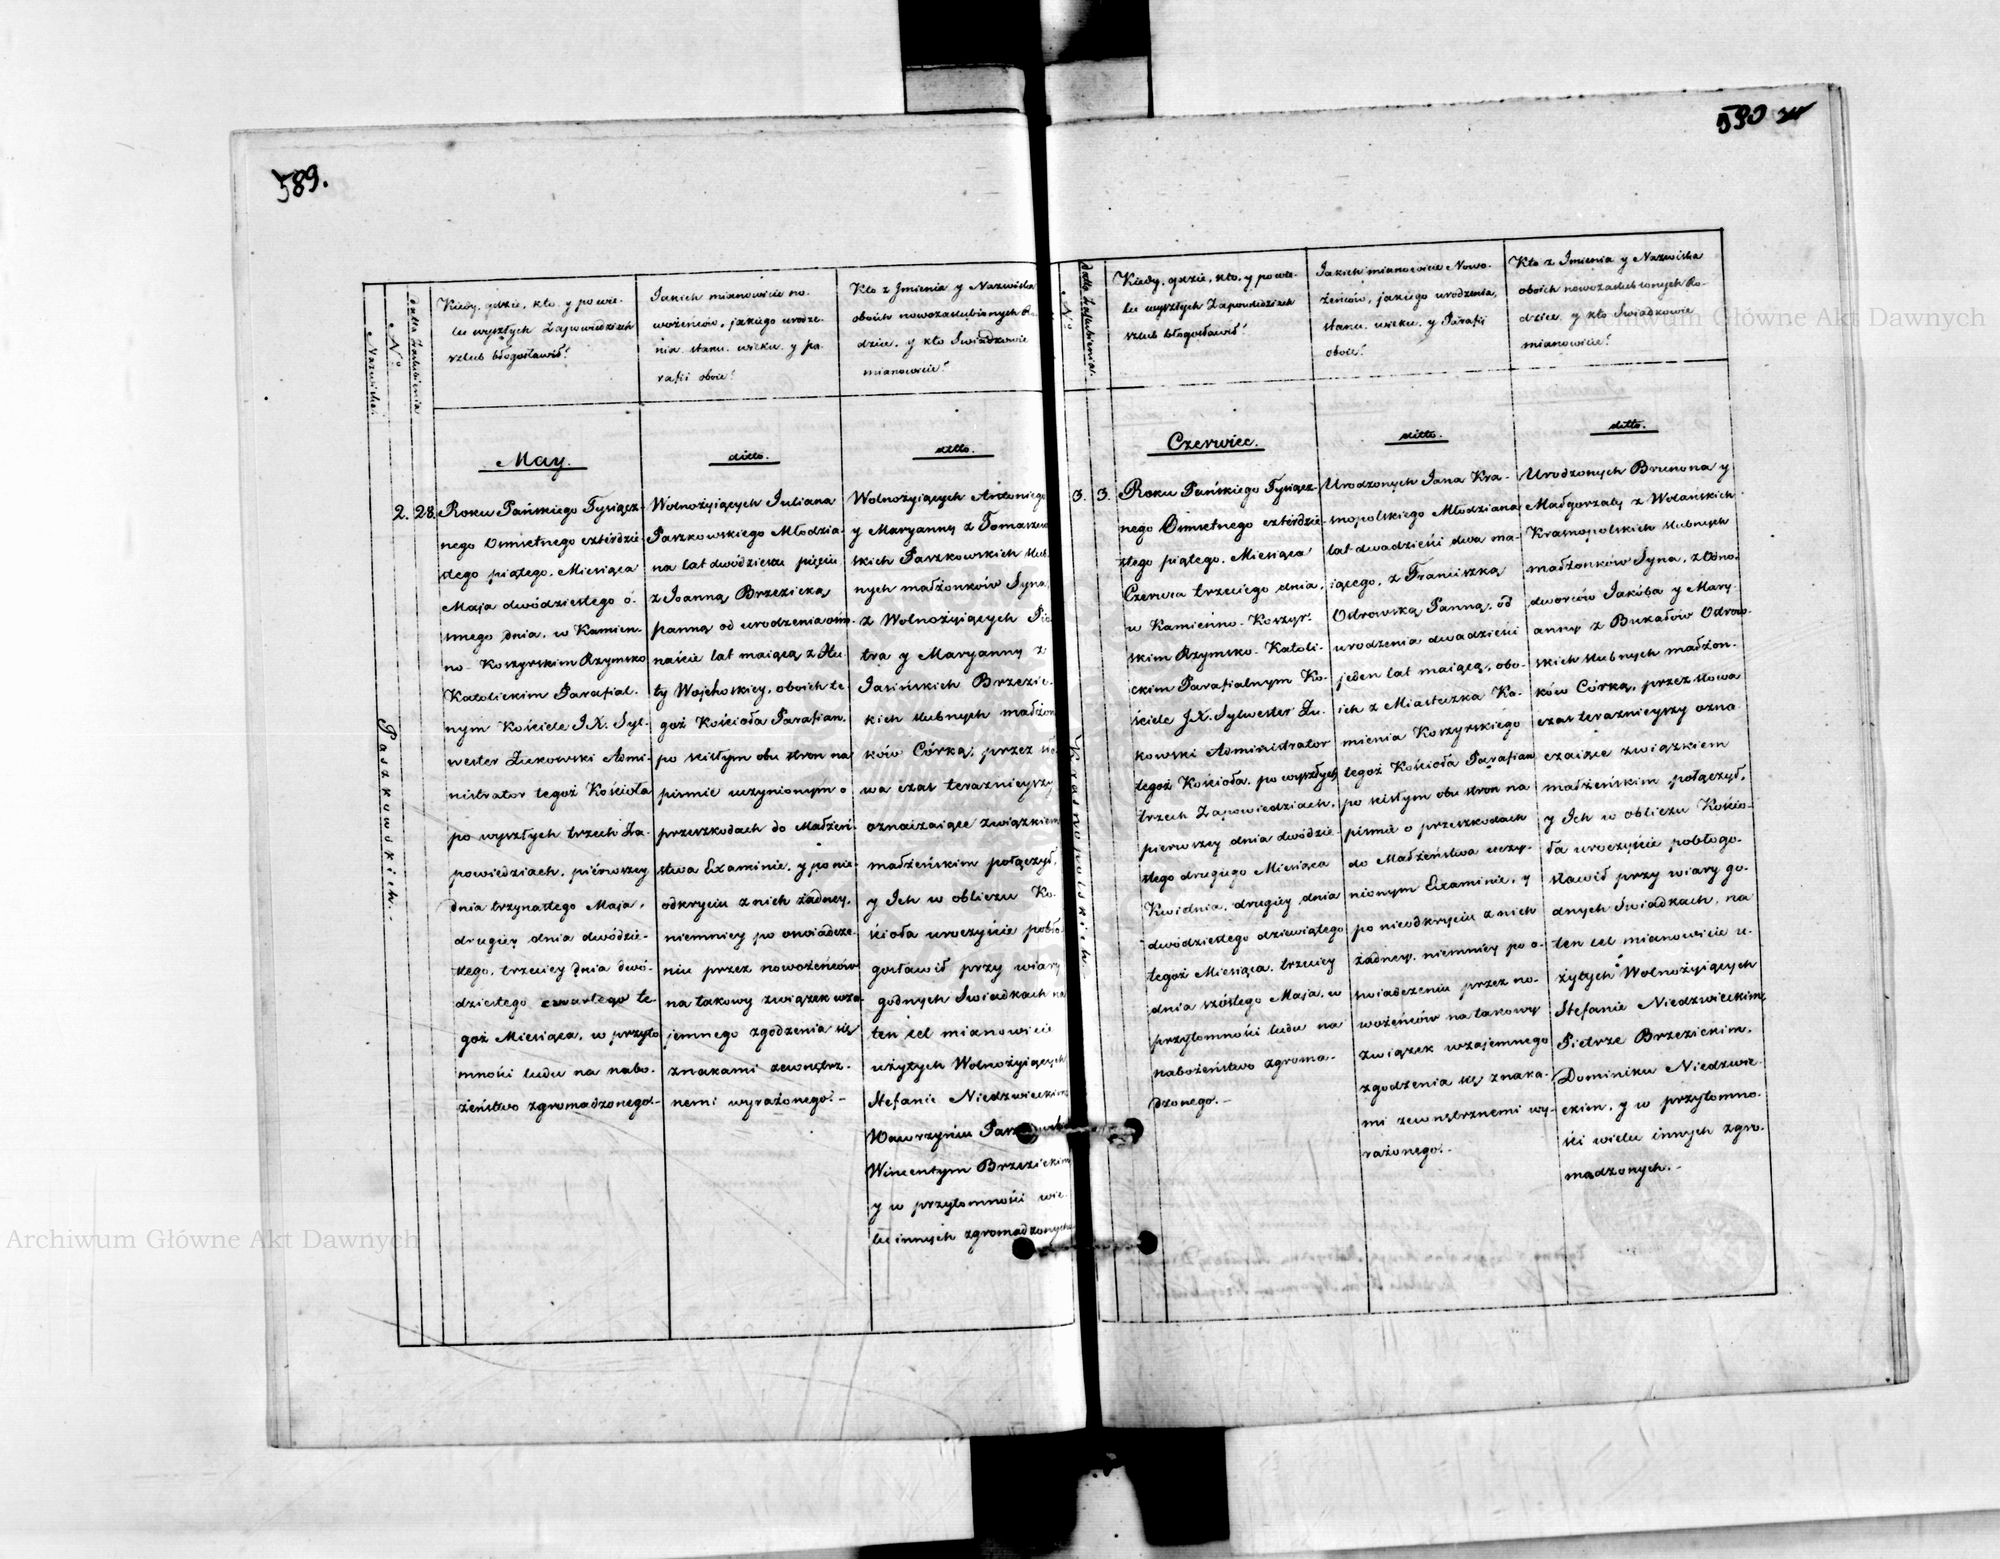 589.
Nazwisko.
N<sup>o</sup>
Datta Zaslubienia
Kiedy, gdzie, kto, y po wie-
lu wyszłych Zapowiedziach
szlub błogosławił?
Jakich mianowicie no-
wożeńców, jakiego urodze-
nia stanu, wieku, y pa-
rafii oboie?
Kto z Jmienia y Nazwiska
oboich nowozaslubionych Ro-
dzice, y kto Swiadkowie
mianowicie?
May.
ditto.
ditto.
Paszkowskich.
2.
28.
Roku Pańskiego Tysiącz-
nego Osmsetnego czterdzie-
stego piątego, Miesiąca
Maja dwódziestego ó-
smego dnia, w Kamien-
no- Koszyrskim Rzymsko
Katolickim Parafial-
nym Kościele J.X. Syl-
wester Żukowski Admi-
nistrator tegoż Kościoła
po wyszłych trzech Za-
powiedziach, pierwszey
dnia trzynastego Maja,
drugiey dnia dwódzie-
stego, trzeciey dnia dwó-
dziestego czwartego te-
goż Miesiąca, w przyto-
mności ludu na nabo-
żeństwo zgromadzonego.-
Wolnożyiących Juliana
Paszkowskiego Młodzia-
na lat dwódziestu pięciu
z Joanną Brzezicką
panną od urodzenia ośm-
naście lat maiącą z Hu-
ty Wojehoskiey, oboich te-
goż Kościoła Parafian,
po scisłym obu stron na
pismie uczynionym o
przeszkodach do Małżeń-
stwa Examinie, y po nie-
odkryciu z nich żadney,
niemniey po oswiadcze-
niu przez nowożeńców
na takowy związek wza-
jemnego zgodzenia się
znakami zewnętrz-
nemi wyrażonego.-
Wolnożyiących Antoniego
y Maryanny z Tomaszew
skich Paszkowskich slub-
nych małżonków Syna,
z Wolnożyiących Pio
tra y Maryanny z
Jasińskich Brzezic-
kich slubnych małżon
ków Córką, przez sło
wa czas teraznieyszy
oznaczaiące związkiem
małżeńskim połączył,
y Ich w obliczu Ko-
ścioła uroczyscie pobło-
gosławił przy wiary
godnych Swiadkach na
ten cel mianowicie
użytych Wolnożyiących
Stefanie Niedzwieckim
Wawrzyńcu
Wincentym Brzezickim
y w przytomności wie-
lu innych zgromadzonych.
590
N<sup>o</sup>
Datta Zaslubienia.
Kiedy, gdzie, kto, y po wie-
lu wyszłych Zapowiedziach
szlub błogosławił?
Jakich mianowicie Nowo-
żeńców, jakiego urodzenia,
stanu, wieku, y Parafii
oboie?
Kto z Jmienia y Nazwiska
oboich nowozaslubionych Ro-
dzice, y kto Swiadkowie
mianowicie?
Czerwiec.
ditto.
ditto.
Krasnopolskich.
3.
3.
Roku Pańskiego Tysiącz-
nego Osmsetnego czterdzie-
stego piątego, Miesiąca
Czerwca trzeciego dnia,
w Kamienno- Koszyr-
skim Rzymsko- Katoli-
ckim Parafialnym Ko-
ściele J.X. Sylwester Żu-
kowski Administrator
tegoż Kościoła, po wyszłych
trzech Zapowiedziach,
pierwszey dnia dwódzie-
stego drugiego Miesiąca
Kwietnia, drugiey dnia
dwódziestego dziewiątego
tegoż Miesiąca, trzeciey
dnia szóstego Maja, w
przytomności ludu na
nabożeństwo zgroma-
dzonego.-
Urodzonych Jana Kra-
snopolskiego Młodziana
lat dwadzieści dwa ma-
iącego, z Franciszką
Odrowską Panną, od
urodzenia dwadzieści
jeden lat maiącą, obo-
ich z Miasteczka Ka-
mienia Koszyrskiego
tegoż Kościoła Parafian
po scisłym obu stron na
pismie o przeszkodach
do Małżeństwa uczy-
nionym Examinie, y
po nieodkryciu z nich
żadney, niemniey po o-
swiadczeniu przez no-
wożeńców na takowy
związek wzajemnego
zgodzenia się znaka-
mi zewnętrznemi wy-
rażonego.-
Urodzonych Brunona y
Małgorzaty z Wolańskich
Krasnopolskich slubnych
małżonków Syna, z Odno-
dworców Jakóba y Mary-
anny z Bukałów Odrow-
skich slubnych małżon-
ków Córką, przez słowa
czas teraznieyszy ozna-
czaiące związkiem
małżeńskim połączył,
y Ich w obliczu Kościo-
ła uroczyscie pobłogo-
sławił przy wiary go-
dnych Swiadkach, na
ten cel mianowicie u-
żytych Wolnożyiących
Stefanie Niedzwieckim,
Pietrze Brzezickim,
Dominiku Niedzwie-
ckim, y w przytomno-
ści wielu innych zgro-
madzonych.-
Archiwum Główne Akt Dawnych
Archiwum Główne Akt Dawnych